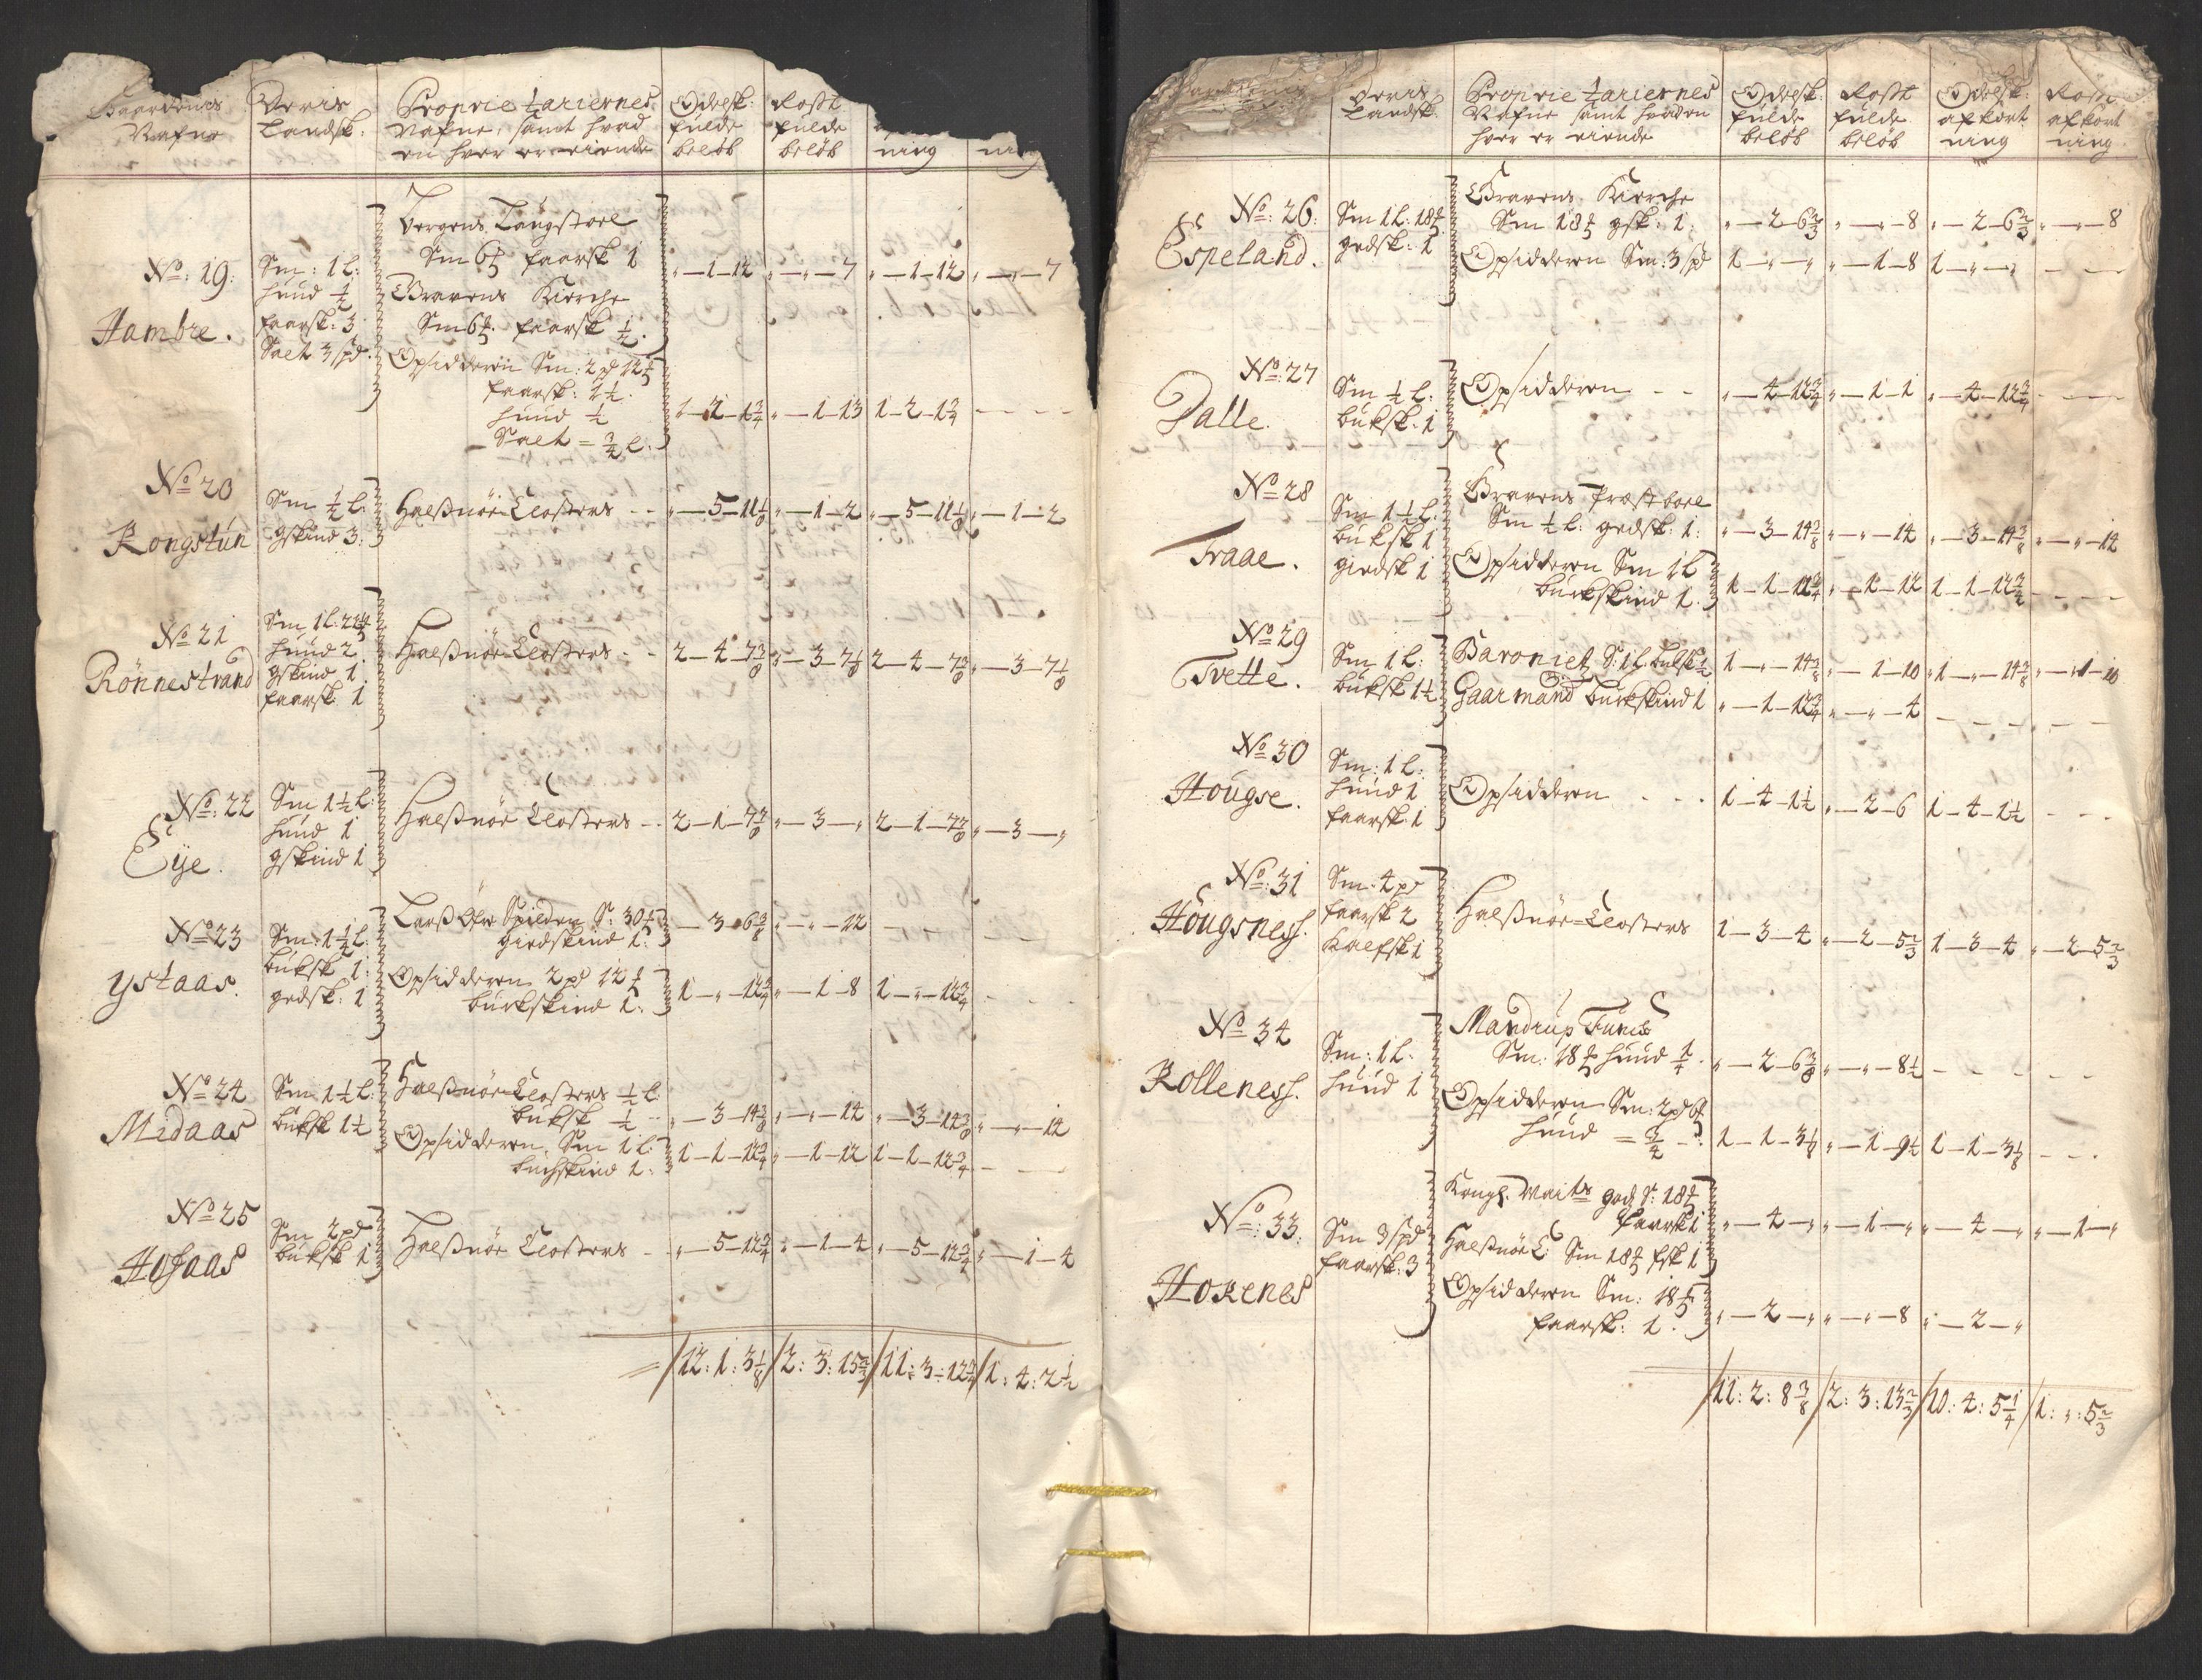 Gaardenes Nafne
Deris Landsk:
Proprietariernes Nafne, samt hvad en hver er eiende
Odelsk: fulde beløb
Rosst fulde beløb
ning
ning
No: 19: Hambre.
Sm: 1 l: huud ½ faarsk: 3 Salt 3 spd
Bergens Laugstoel
Sm 6 faarsk 1
"—1—12 "—"—7 "—1—12 "—"—7
Gravens Kierche
Sm 6 faarsk ½.
Opsidderen Sm: 2 pd 12
faarsk: 1½.
huud ½
Salt = ¾ l:
1—2—1¾ "—1—13 1—2—1¾ — — —
No 20 Kongstun
Sm ½ l: gskind 3:
Halsnöe Closters "—5—11⅛ "—1—2 "—5—11⅛ "—1—2
No 21 Rönnestrand
Sm 1 l: 21 huud 2 gskind 1 faarsk 1
Halsnöe Closters 2—4—7⅜ "—3—7⅛ 2—4—7⅜ "—3—7⅛
No: 22 Eÿe.
Sm 1½ l: huud 1 gskind 1
Halsnöe Closters 2—1—7⅞ "—3—" 2—1—7⅞ "—3—"
No 23 ÿstaas.
Sm: 1¼ l: buksk 1: gedsk: 1
Lars Spilden S: 30
giedskind 1:
—3—6⅜ "—"—12 — — — —
Opsidderen 2 pd 12
buckskind 1:
1—"—12¾ "—1—8 1—"—12¾ — — —
No 24 Midaas
Sm 1½ l: buksk 1½
Halsnöe Closters ½ l:
buksk ½ "—3—14⅜ "—"—14 "—3—14⅜ "—"—14
Opsidderen, Sm 1 l:
buchskind 1:
1—1—12¾ "—1—12 1—1—12¾ — — —
No 25 Hofaas
Sm 2 pd buksk 1
Halsnöe Closters "—5—12¾ "—1—4 "—5—12¾ "—1—4
12: 1: 3⅛ 2: 3: 15⅔ 11: 3: 12¾ 1: 4: 2½
Deris Landsk:
Proprietariernes Nafne samt hvad en hver er eiende
Odelsk: fulde beløb
Rosst fulde beløb
Odelsk: afkort ning
Rosst afkort ning
No: 26: Espeland.
Sm 1 l: 18 gedsk: 1
Gravens Kierche
Sm 18 gsk: 1: "—2—6⅔ "—"—8 "—2—6⅔ "—"—8
Opsidderen Sm: 3 spd 1—"—" "—1—8 1—"—" — — —
No: 27 Dalle.
Sm ½ l: buksk: 1
Opsidderen "—4—12¾ "—1—1 "—4—12¾ — — —
No 28 Traae.
Sm 1½ l: buksk 1 giedsk 1
Gravens Prestboel
Sm ½ l: gedsk: 1: "—3—14⅜ "—"—14 "—3—14⅜ "—"—14
Opsidderen Sm 1 l
buckskind 1: 1—1—12¾ "—1—12 1—1—12¾ — — —
No 29 Tvette.
Sm 1 l: buksk 1½
Baroniet S: 1 l: buksk ½ 1—"—14⅜ "—1—10 1—"—14⅜ "—1—10
Gaarmand buckskind 1 "—1—12¾ "—"—4 — — — —
No 30 Hougse.
Sm: 1 l: huud 1 faarsk: 1
Opsidderen 1—4—1½ "—2—6 1—4—1½ — — —
No: 31 Hougsness.
Sm: 4 pd faarsk 2 kalfsk 1
Halsnöe Closters 1—3—4 "—2—5⅔ 1—3—4 "—2—5⅔
No 34 Kolleness.
Sm: 1 l: huud 1
Mandrup Tuns
Sm: 18 huud ¼. "—2—6⅜ "—"—8½ — — — —
Opsidderen Sm: 2 pd 6
huud = ¾ 1—1—3⅛ "—1—9½ 1—1—3⅛ — — —
No: 33: Hokenes
Sm 3 spd faarsk: 3
Kongl. Maits gods S: 18
faarsk 1 "—4—" "—1—" "—4—" "—1—"
Halsnöe C: Sm 18 fsk 1
Opsidderen Sm: 18
faarsk: 1. "—2—" "—"—8 "—2—"
11: 2: 8⅜ 2: 3: 13⅔ 10: 4: 5¼ 1: ": 5⅔